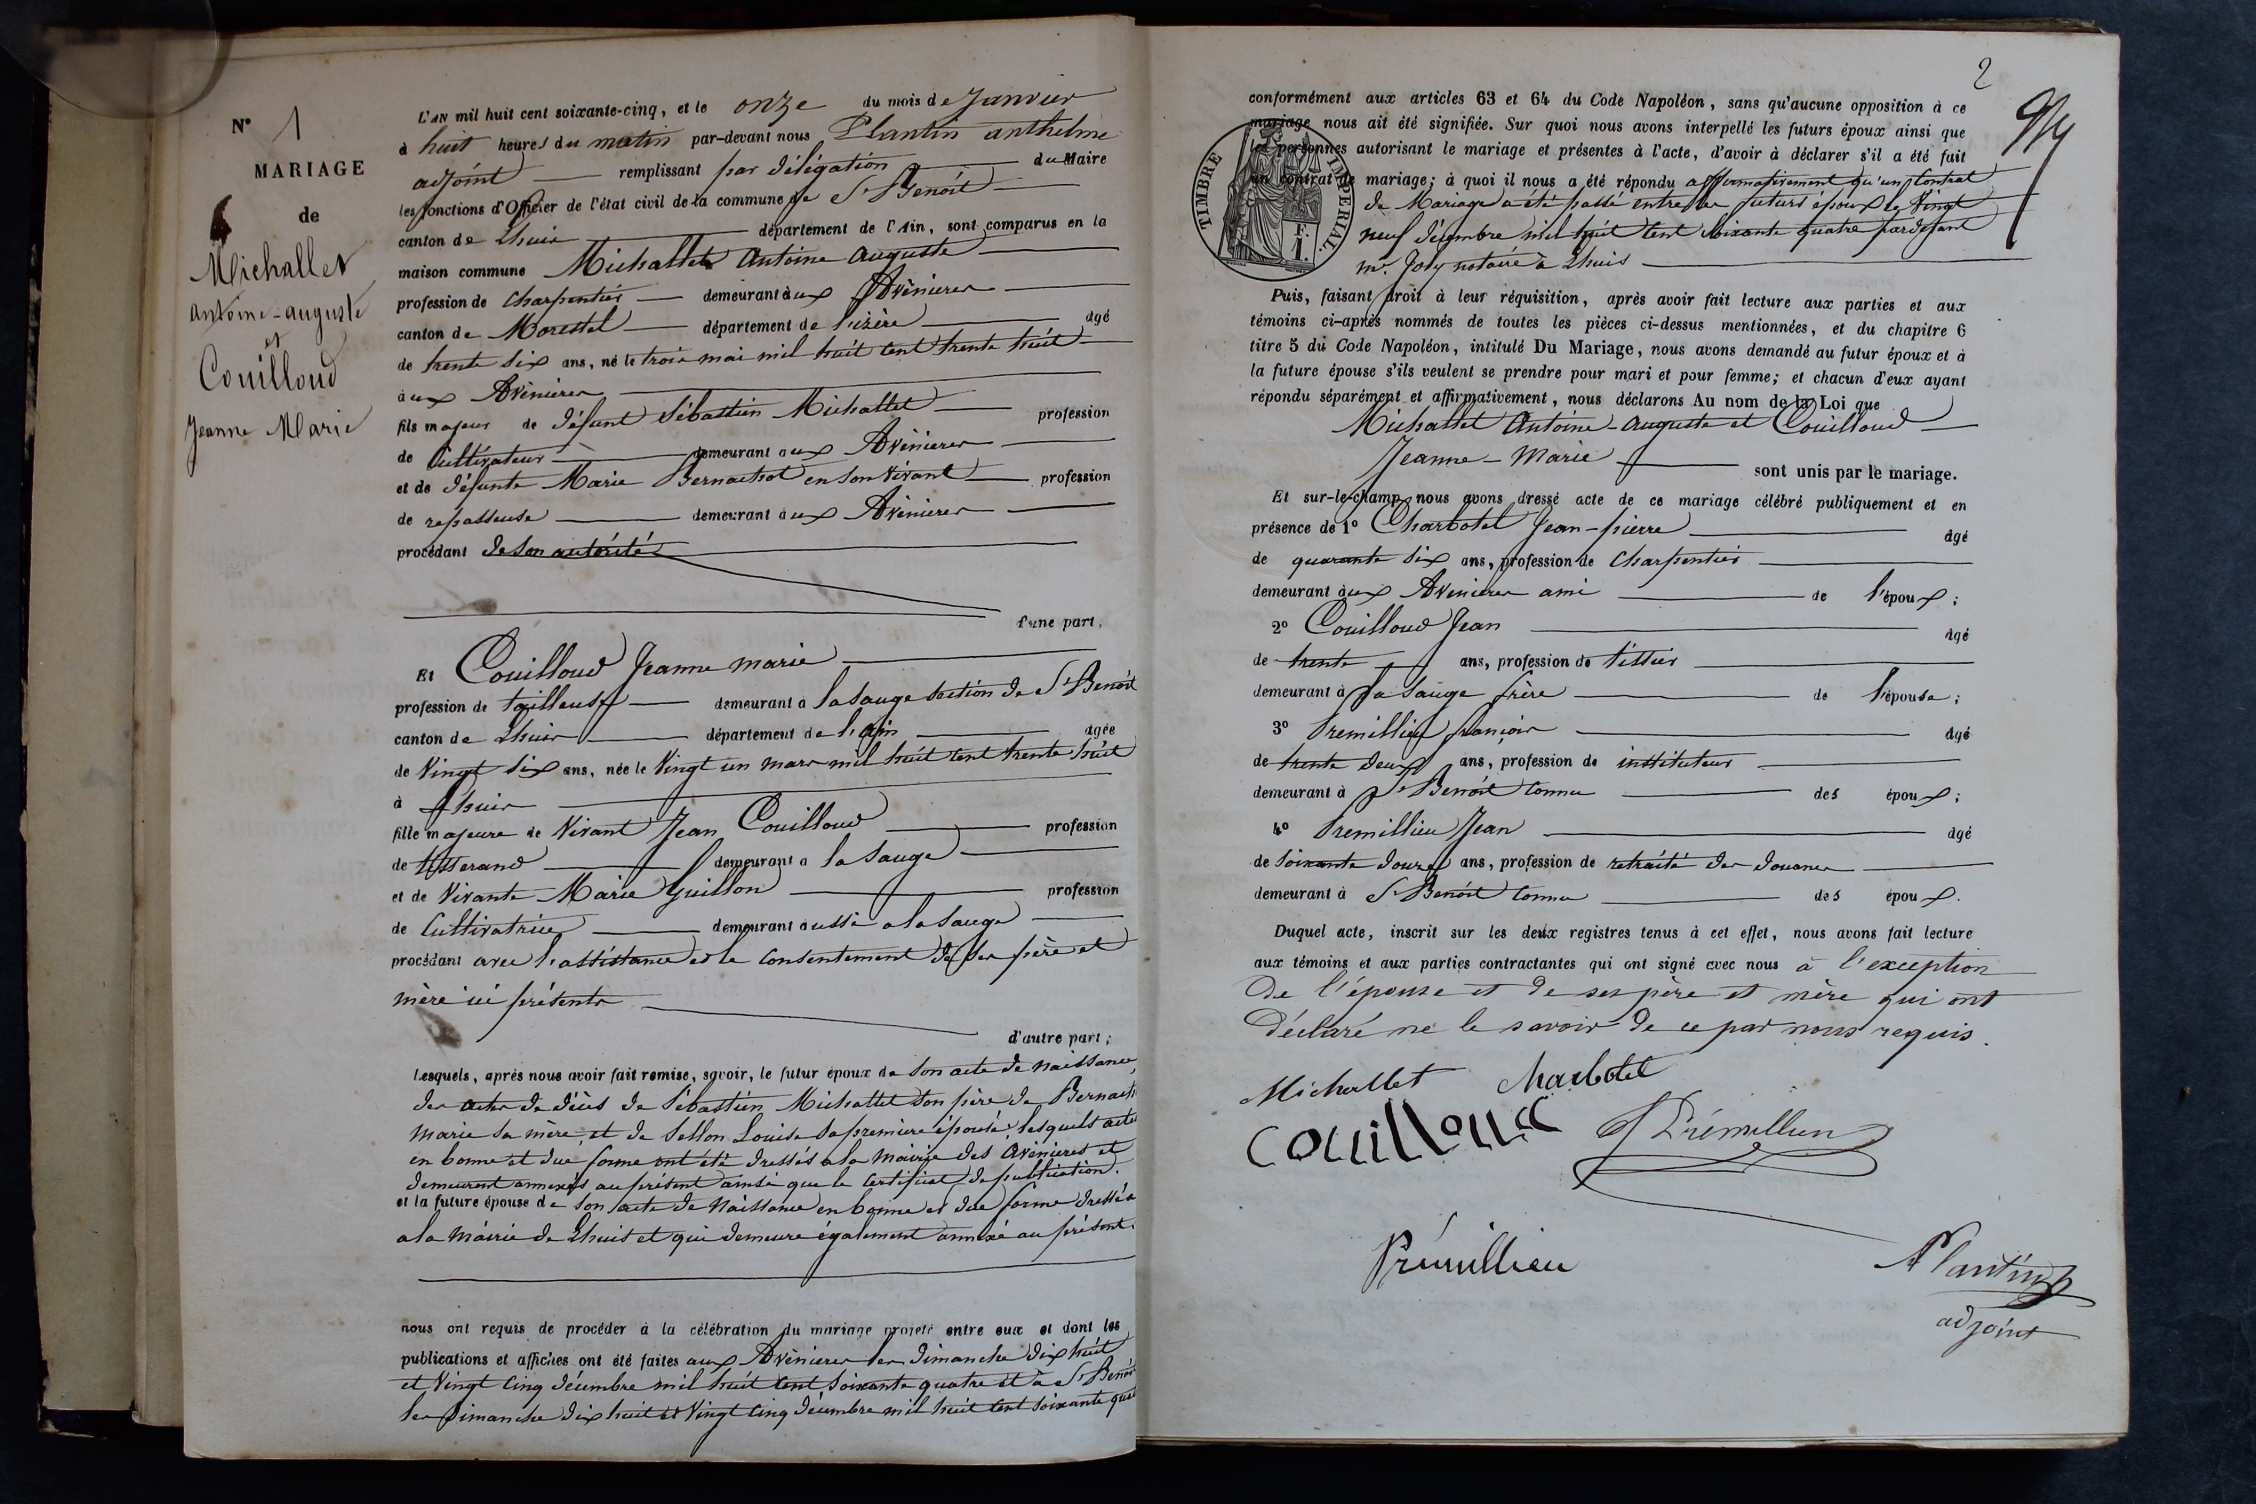 N° 1
MARIAGE
de
Michallet
antoine-auguste
et
Couilloud
Jeanne Marie
L'AN mil huit cent soixante-cinq, et le onze du mois de Janvier
à huit heures du matin par-devant nous Plantin anthelme
adjoint remplissant par délégation du Maire
les fonctions d'Officier de l'état civil de la commune de St Benoît
canton de Lhuis département de l'Ain, sont comparus en la
maison commune Michallet Antoine Auguste
profession de charpentier demeurant aux Avenieres
canton de Morestel département de l'isère âgé
de trente six ans, né le trois mai mil huit cent trente huit
à ux Avenieres
fils majeur de défunt Sébastien Michallet profession
de Cultivateur demeurant aux Avenieres
et de défunte Marie Bernachot en son vivant profession
de repasseuse demeurant aux Avenieres
procédant de son autorité
d'une part,
Et Couilloud Jeanne marie
profession de tailleuse demeurant à la sauge section de St Benoît
canton de Lhuis département de l'ain âgée
de Vingt six ans, née le Vingt un mars mil huit cent trente huit
à Lhuis
fille majeure de Vivant Jean Couilloud profession
de tisserand demeurant a la Sauge
et de Vivante Marie Guillon profession
de Cultivatrice demeurant aussi a la Sauge
procédant avec l'assistance et le consentement de ses père et
mère ici présents
d'autre part;
Lesquels, après nous avoir fait remise, savoir, le futur époux de son acte de naissance,
des actes de décès de Sébastien Michallet son père de Bernach
Marie sa mère, et de Sellon Louise sa premiere épouse, lesquels actes
en bonne et due forme ont été dressés a la Mairie des Avenieres et
demeurent annexés au présent ainsi que le Certificat de publication.
et la future épouse de son acte de Naissance en bonne et due forme dressé a
a la Mairie de Lhuis et qui demeure également annexé au présent.
nous ont requis de procéder à la célébration du mariage projeté entre eux et dont les
publications et affiches ont été faites aux Avenieres les dimanche dix huit
et Vingt Cinq décembre mil huit cent soixante quatre et à St Benoît
les dimanche dix huit et Vingt Cinq décembre mil huit cent soixante quat
2
conformément aux articles 63 et 64 du Code Napoléon, sans qu'aucune opposition à ce
mariage nous ait été signifiée. Sur quoi nous avons interpellé les futurs époux ainsi que
les personnes autorisant le mariage et présentes à l'acte, d'avoir à déclarer s'il a été fait
un contrat de mariage; à quoi il nous a été répondu affirmativement qu'un Contrat
de Mariage a été passé entre les futurs époux le Vingt
neuf décembre mil huit cent soixante quatre pardevant
mr. Joly notaire à Lhuis
TIMBRE IMPERIAL.
F.
1.
Puis, faisant droit à leur réquisition, après avoir fait lecture aux parties et aux
témoins ci-après nommés de toutes les pièces ci-dessus mentionnées, et du chapitre 6
titre 5 du Code Napoléon, intitulé Du Mariage, nous avons demandé au futur époux et à
la future épouse s'ils veulent se prendre pour mari et pour femme; et chacun d'eux ayant
répondu séparément et affirmativement, nous déclarons Au nom de la Loi que
Michallet Antoine-Auguste et Couilloud
Jeanne-Marie sont unis par le mariage.
Et sur-le-champ nous avons dressé acte de ce mariage célébré publiquement et en
présence de 1° Charbotel Jean-pierre âgé
de quarante six ans, profession de Charpentier
demeurant aux Avenieres ami de l'époux;
2° Couilloud Jean âgé
de trente ans, profession de tissier
demeurant à la Sauge frère de l'épouse;
3° Premillieu françois âgé
de trente deux ans, profession de instituteur
demeurant à St Benoît connu des époux;
4° Premillieu Jean âgé
de soixante douze ans, profession de retraité des douanes
demeurant à St Benoît connu des époux.
Duquel acte, inscrit sur les deux registres tenus à cet effet, nous avons fait lecture
aux témoins et aux parties contractantes qui ont signé avec nous à l'exception
De l'épouse et de ses père et mère qui ont
Déclaré ne le savoir de ce par nous requis.
Michallet Charbotel
Couilloud Prémillieu
Prémillieu
Plantin
adjoint